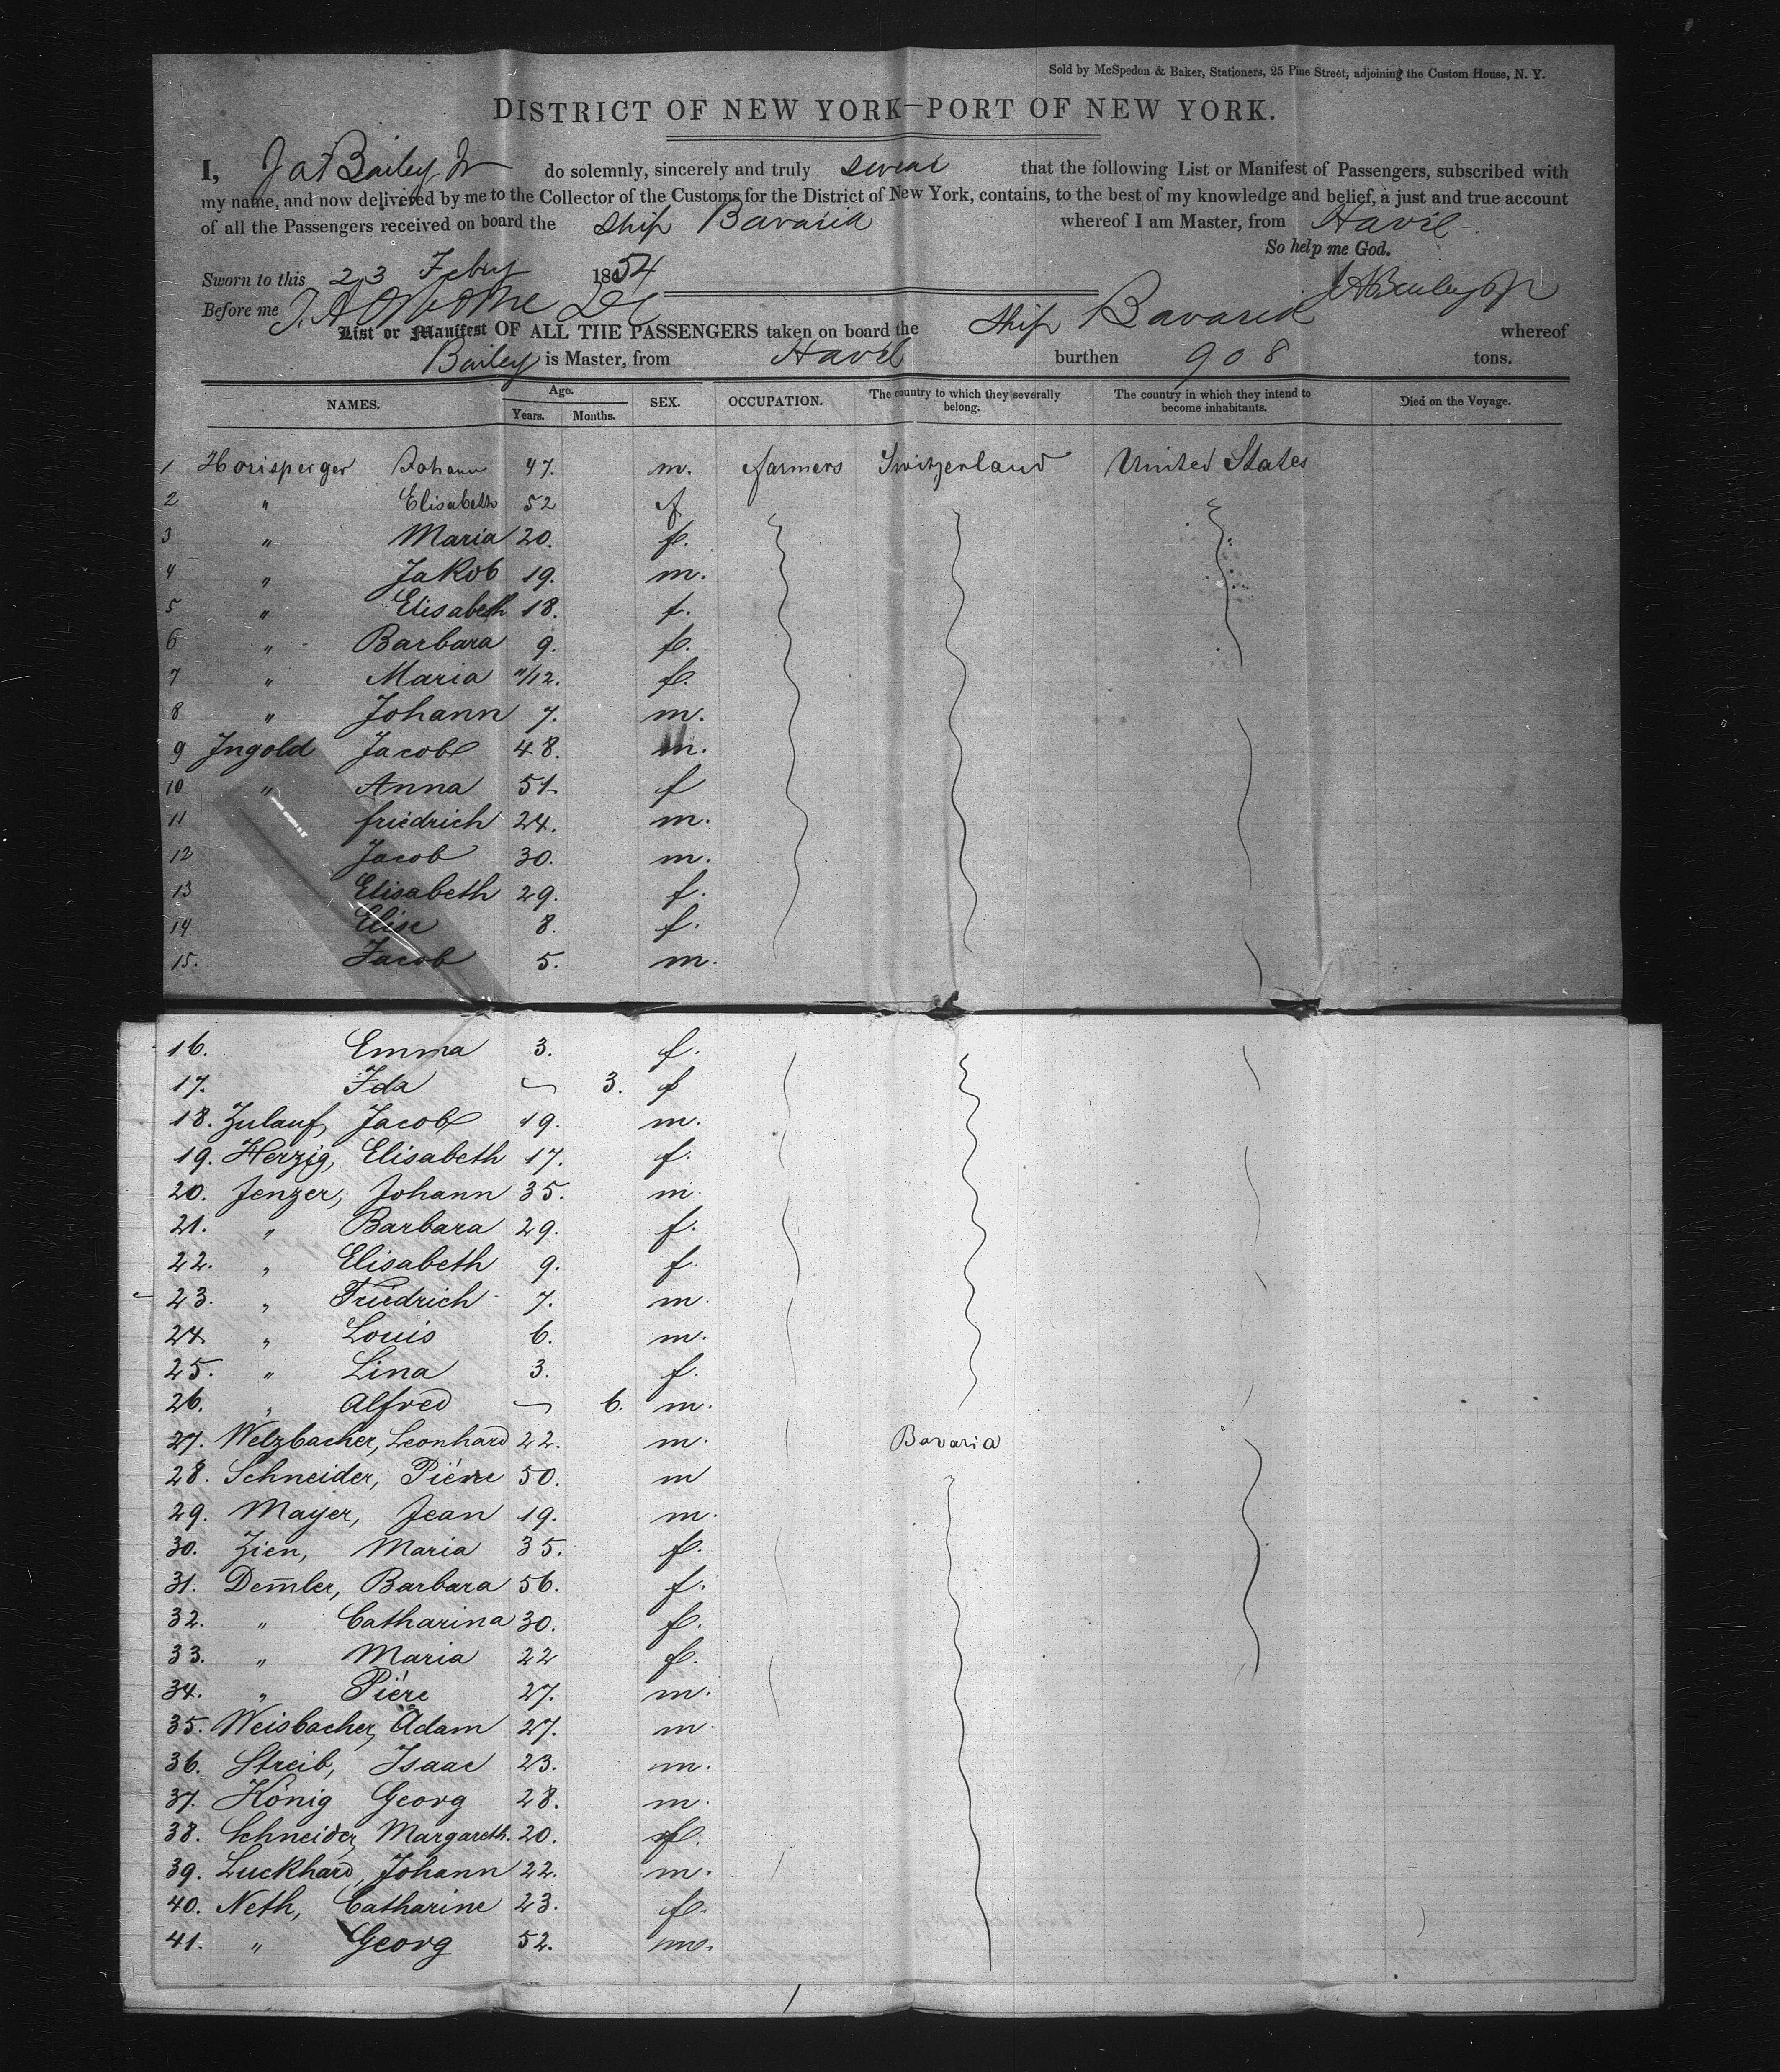 Sold by McSpedon & Baker, Stationers, 25 Pine Street, adjoining the Custom House, N. Y.
DISTRICT OF NEW YORK—PORT OF NEW YORK.
I, Bailey Jr do solemnly, sincerely and truly swear that the following List or Manifest of Passengers, subscribed with
my name, and now delivered by me to the Collector of the Customs for the District of New York, contains, to the best of my knowledge and belief, a just and true account
of all the Passengers received on board the Ship Bavaria whereof I am Master, from Havre
So help me God.
Sworn to this 23 Feby 1854
Before me
List or Manifest OF ALL THE PASSENGERS taken on board the Ship Bavaria whereof
Bailey is Master, from Havre burthen 908 tons.
NAMES. Age. Years. Months. SEX. OCCUPATION. The country to which they severally belong. The country in which they intend to become inhabitants. Died on the Voyage.
1 Horisperger Johann 47. m. farmers Switzerland United States
2 " Elisabeth 52 f
3 " Maria 20. f.
4 " Jakob 19. m.
5 " Elisabeth 18. f.
6 " Barbara 9. f.
7 " Maria 11/12. f.
8 " Johann 7. m.
9 Ingold Jacob 48. m.
10 " Anna 51 f
11 friedrich 24. m.
12 Jacob 30. m.
13 Elisabeth 29. f.
14 Elise 8. f.
15. Jacob 5. m.
16. Emma 3. f.
17. Ida 3. f
18. Zulauf, Jacob 19. m.
19. Herzig, Elisabeth 17. f.
20. Jenzer, Johann 35. m.
21. " Barbara 29. f.
22. " Elisabeth 9. f.
23. " Friedrich 7. m.
24. " Louis 6. m.
25. " Lina 3. f.
26. " Alfred 6. m.
27. Welzbacher, Leonhard 22. m. Bavaria
28. Schneider, Piérre 50. m
29. Mayer, Jean 19. m.
30. Zien, Maria 35. f.
31. Dem̄ler, Barbara 56. f.
32. " Catharina 30. f.
33. " Maria 22 f.
34. " Piére 27. m.
35. Weisbacher, Adam 27. m.
36. Streib, Isaac 23. m.
37. König Georg 28. m.
38. Schneider, Margareth. 20. f.
39. Luckhard, Johann 22. m.
40. Neth, Catharine 23. f.
41. " Georg 52. m.